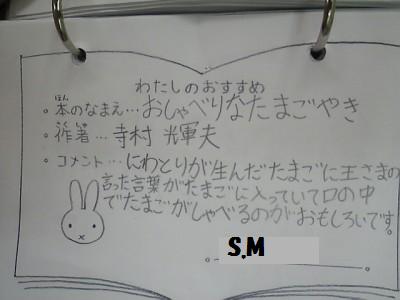 わたしのおすすめ
。本のなまえ…おしゃべりなたまごやき
ほん
。作者…寺村 輝夫
。コメント…にわとりが生んだたまごに王さまの
言った言葉がたまごに入っていて口の中
でたまごがしゃべるのがおもしろいです。
S.M